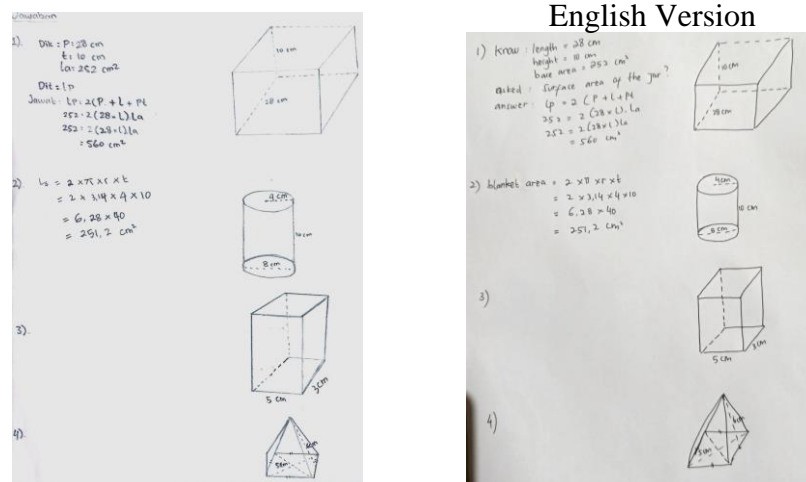 English Version
Jawaban
1). Dik : P : 28 cm
t : 10 cm
La : 252 cm2
Dit : Lp
Jawab : Lp : 2(P. + L + Pt
252 : 2(28 × L) La
252 : 2(28×L) La
= 560 cm2
10 cm
28 cm
2). Ls = 2 × π × r × t
= 2 × 3,14 × 4 × 10
= 6,28 × 40
= 251,2 cm2
4 cm
10 cm
8 cm
3).
5 cm
3 cm
4).
5cm
1) Know : length = 28 cm
height = 10 cm
base area = 252 cm2
asked : surface area of the jar?
answer : Lp = 2 ( P + L + Pt
252 = 2 (28×L). La
252 = 2 (28×L) La
= 560 cm2
10 cm
28 cm
2) blanket area = 2 × π × r × t
= 2 × 3,14 × 4 × 10
= 6,28 × 40
= 251,2 cm2
4cm
10 cm
8 cm
3)
5 cm
3 cm
4)
5 cm